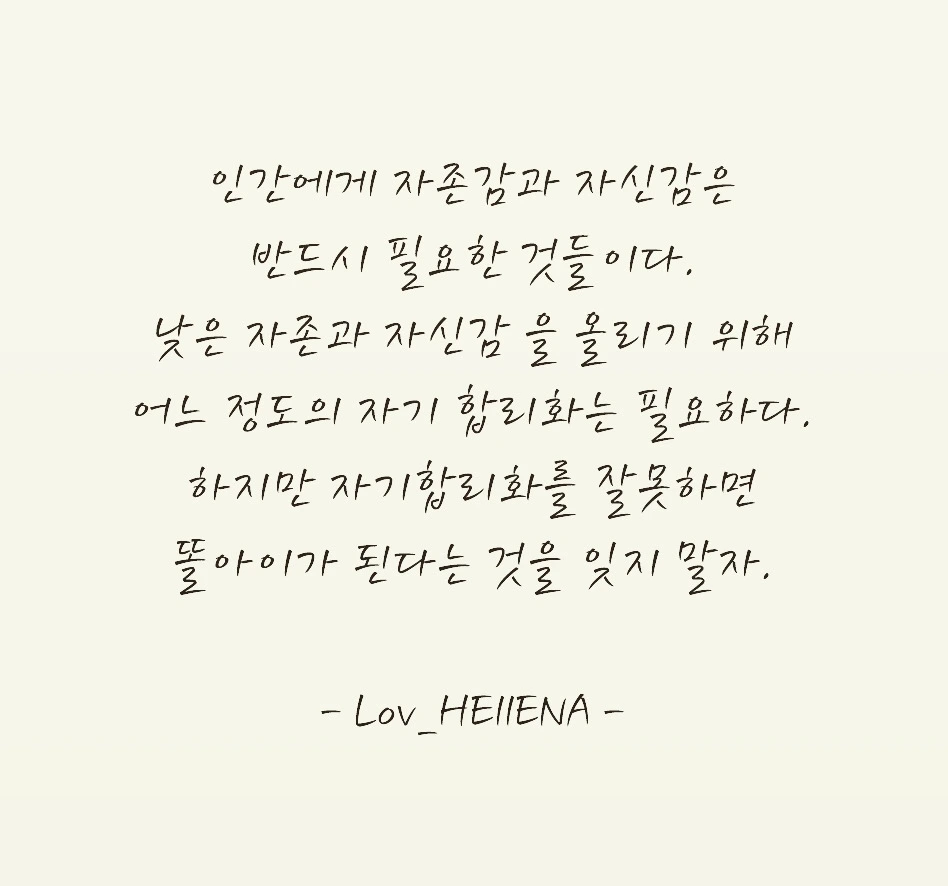 인간에게 자존감과 자신감은
반드시 필요한 것들이다.
낮은 자존과 자신감 을 올리기 위해
어느 정도의 자기 합리화는 필요하다.
하지만 자기합리화를 잘못하면
똘아이가 된다는 것을 잊지 말자.
- Lov_HEllENA -